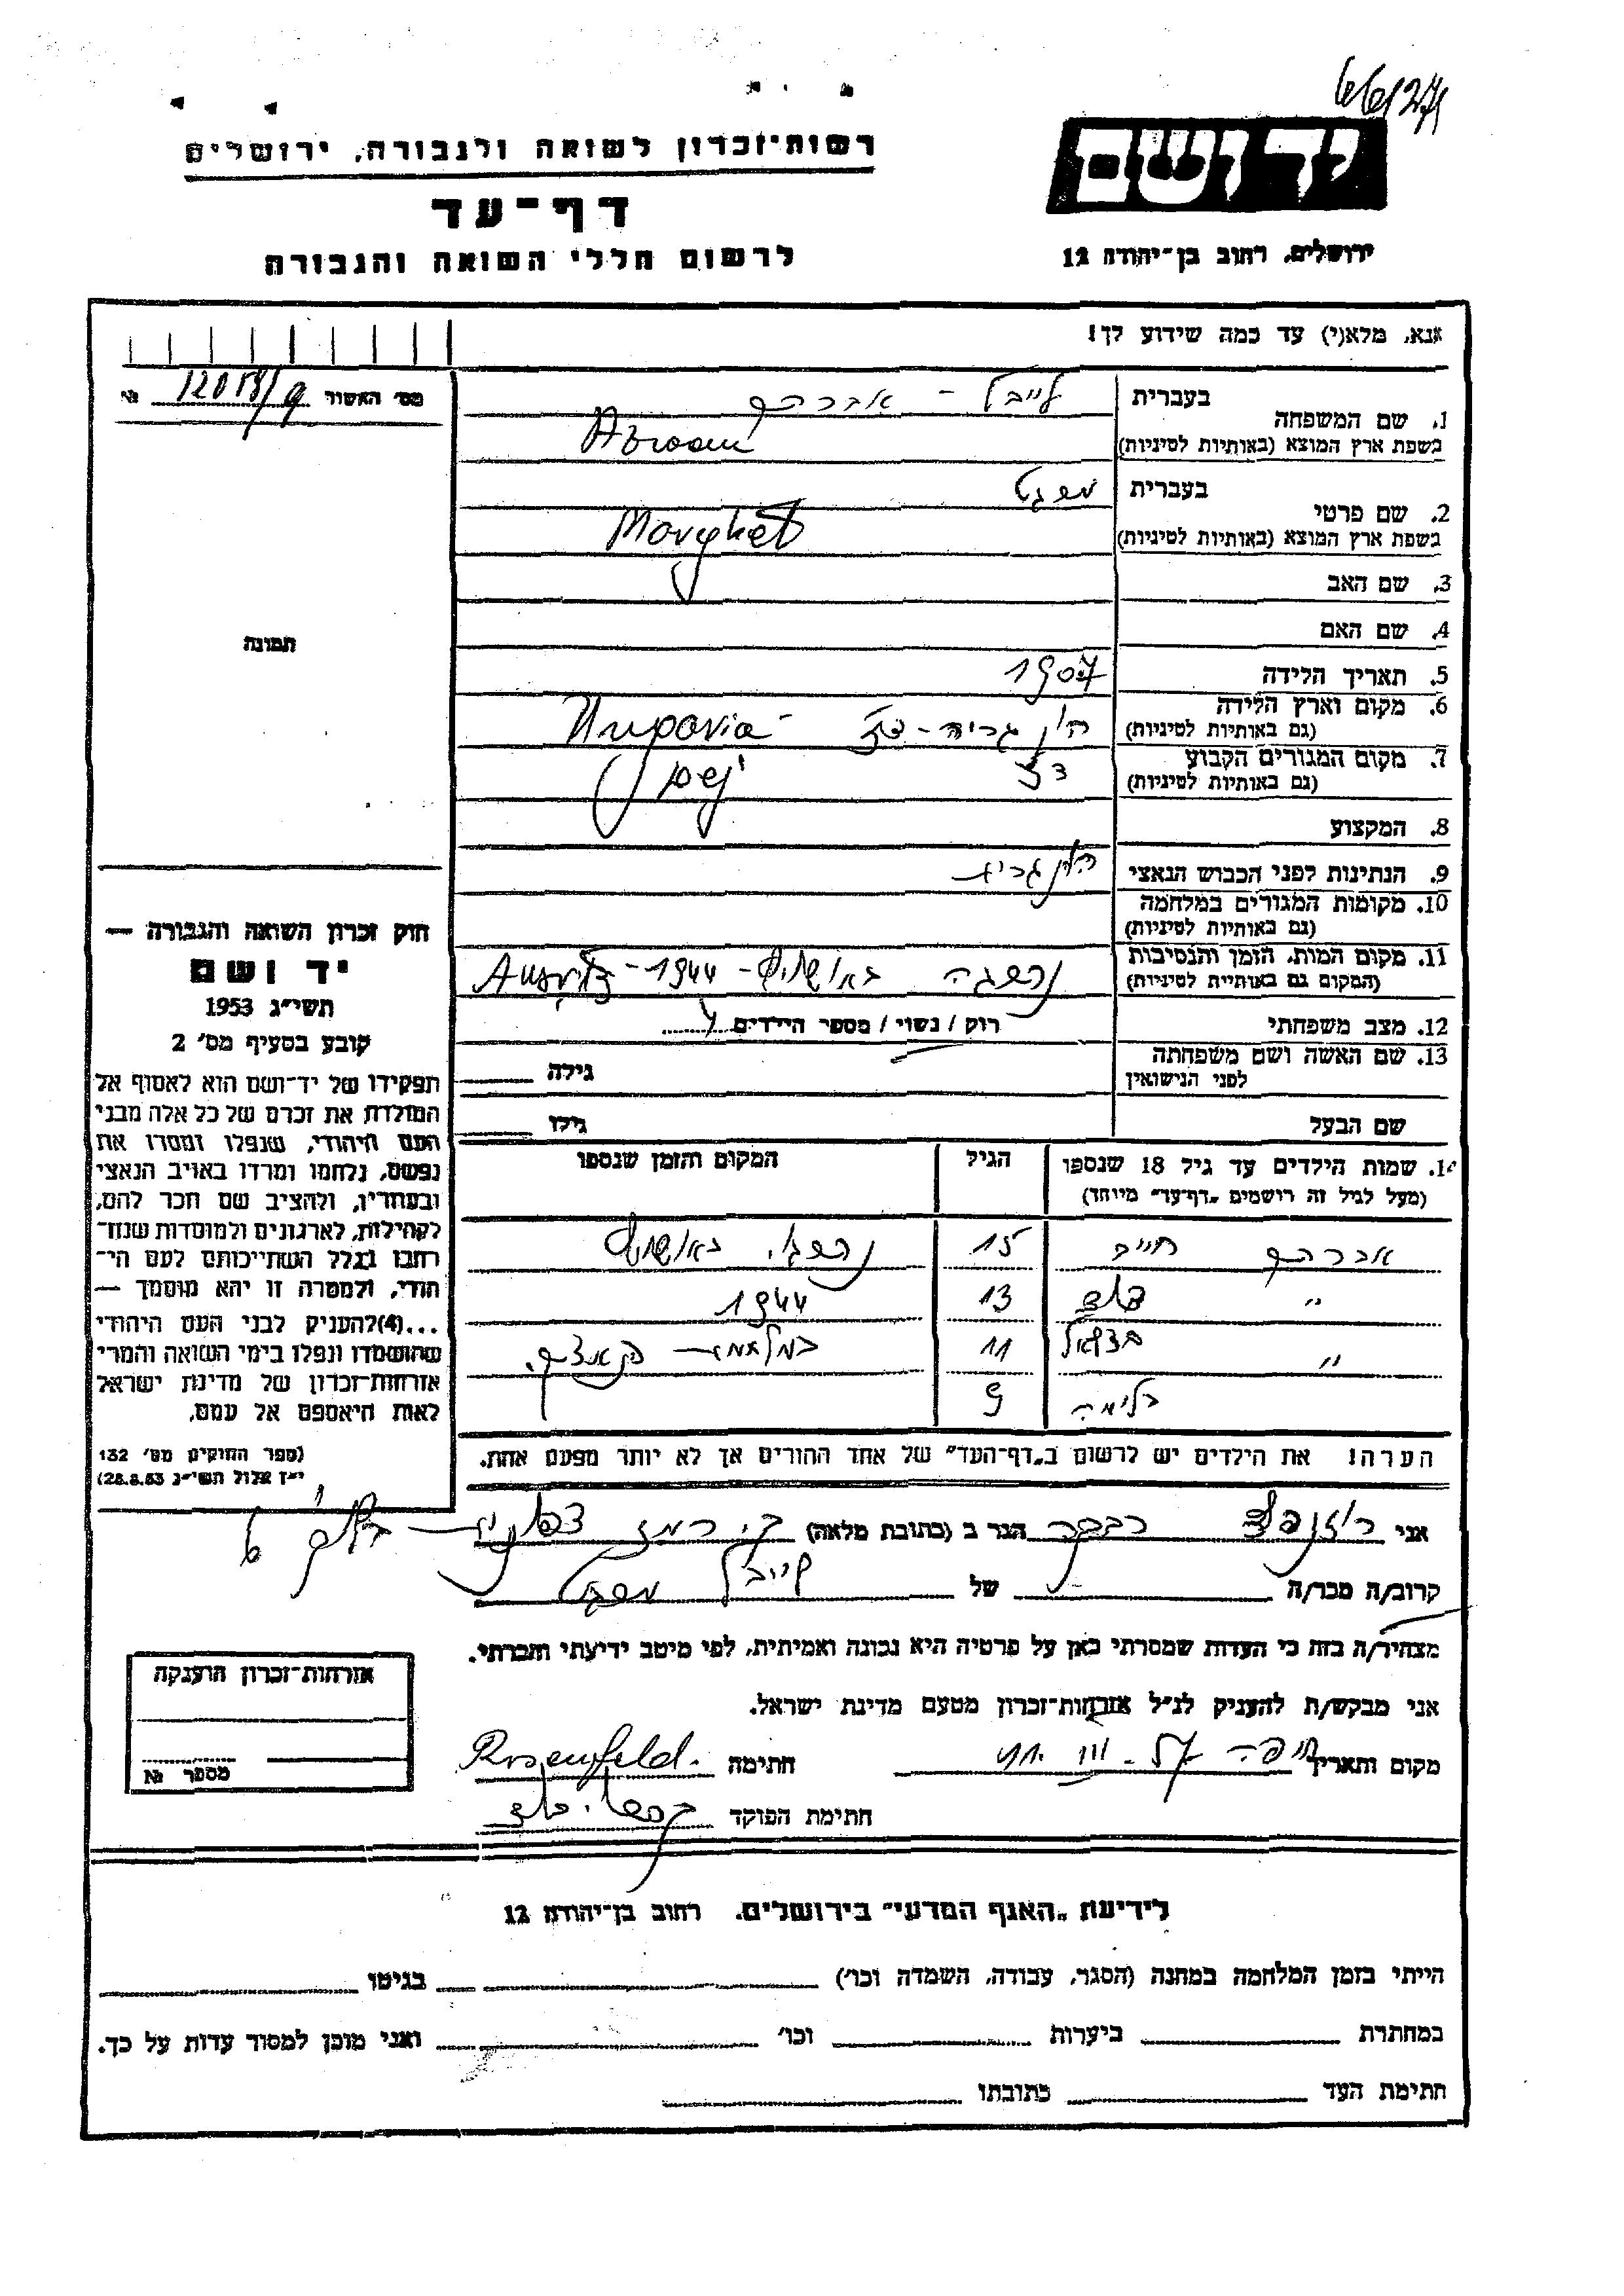 66127
יד ושם
ירושלים, רחוב בן־יהודה 12
רשות־זכרון לשואה ולגבורה, ירושלים
דף־עד
לרשום חללי השואה והגבורה
אנא, מלא(י) עד כמה שידוע לך!
מס' האשור №
1. שם המשפחה
בעברית לייבל - אברהם
בשפת ארץ המוצא (באותיות לטיניות)
2. שם פרטי
בעברית
בשפת ארץ המוצא (באותיות לטיניות)
3. שם האב
4. שם האם
5. תאריך הלידה 1907
6. מקום וארץ הלידה
(גם באותיות לטיניות) הונגריה - דז
7. מקום המגורים הקבוע דז
(גם באותיות לטיניות) Dej
8. המקצוע
9. הנתינות לפני הכבוש הנאצי הונגרית
10. מקומות המגורים במלחמה
(גם באותיות לטיניות)
11. מקום המות, הזמן והנסיבות
(המקום גם באותיות לטיניות) נרצחה באושויץ - 1944
12. מצב משפחתי רווק / נשוי / מספר הילדים 4
13. שם האשה ושם משפחתה
לפני הנישואין גילה
שם הבעל גילו
14. שמות הילדים עד גיל 18 שנספו
(מעל לגיל זה רושמים „דף־עד" מיוחד)
הגיל
המקום והזמן שנספו
אברהם חיים 15 באושויץ
" 13 1944
" בצלאל 11
בלימה 9
הערה! את הילדים יש לרשום ב„דף־העד" של אחד ההורים אך לא יותר מפעם אחת.
תמונה
חוק זכרון השואה והגבורה —
יד ושם
תשי"ג 1953
קובע בסעיף מס' 2
תפקידו של יד־ושם הוא לאסוף אל
המולדת את זכרם של כל אלה מבני
העם היהודי, שנפלו ומסרו את
נפשם, נלחמו ומרדו באויב הנאצי
ובעוזריו, ולהציב שם וזכר להם,
לקהילות, לארגונים ולמוסדות שנח־
רבו בגלל השתייכותם לעם הי־
הודי, ולמטרה זו יהא מוסמך —
...(4) להעניק לבני העם היהודי
שהושמדו ונפלו בימי השואה והמרי
אזרחות־זכרון של מדינת ישראל
לאות היאספם אל עמם.
(ספר החוקים מס' 132
י"ז אלול תשי"ג 28.8.53)
אני רוזנפלד רבקה הגר ב (כתובת מלאה)
קרוב/ה מכר/ה של לייבל
מצהיר/ה בזה כי העדות שמסרתי כאן על פרטיה היא נכונה ואמיתית, לפי מיטב ידיעתי והכרתי.
אני מבקש/ת להעניק לנ"ל אזרחות־זכרון מטעם מדינת ישראל.
מקום ותאריך חיפה חתימה Rosenfeld.
חתימת הפוקד
אזרחות־זכרון הוענקה
מספר №
לידיעת „האגף המדעי" בירושלים, רחוב בן־יהודה 12
הייתי בזמן המלחמה במחנה (הסגר, עבודה, השמדה וכו') בגיטו
במחתרת ביערות וכו' ואני מוכן למסור עדות על כך.
חתימת העד כתובתו